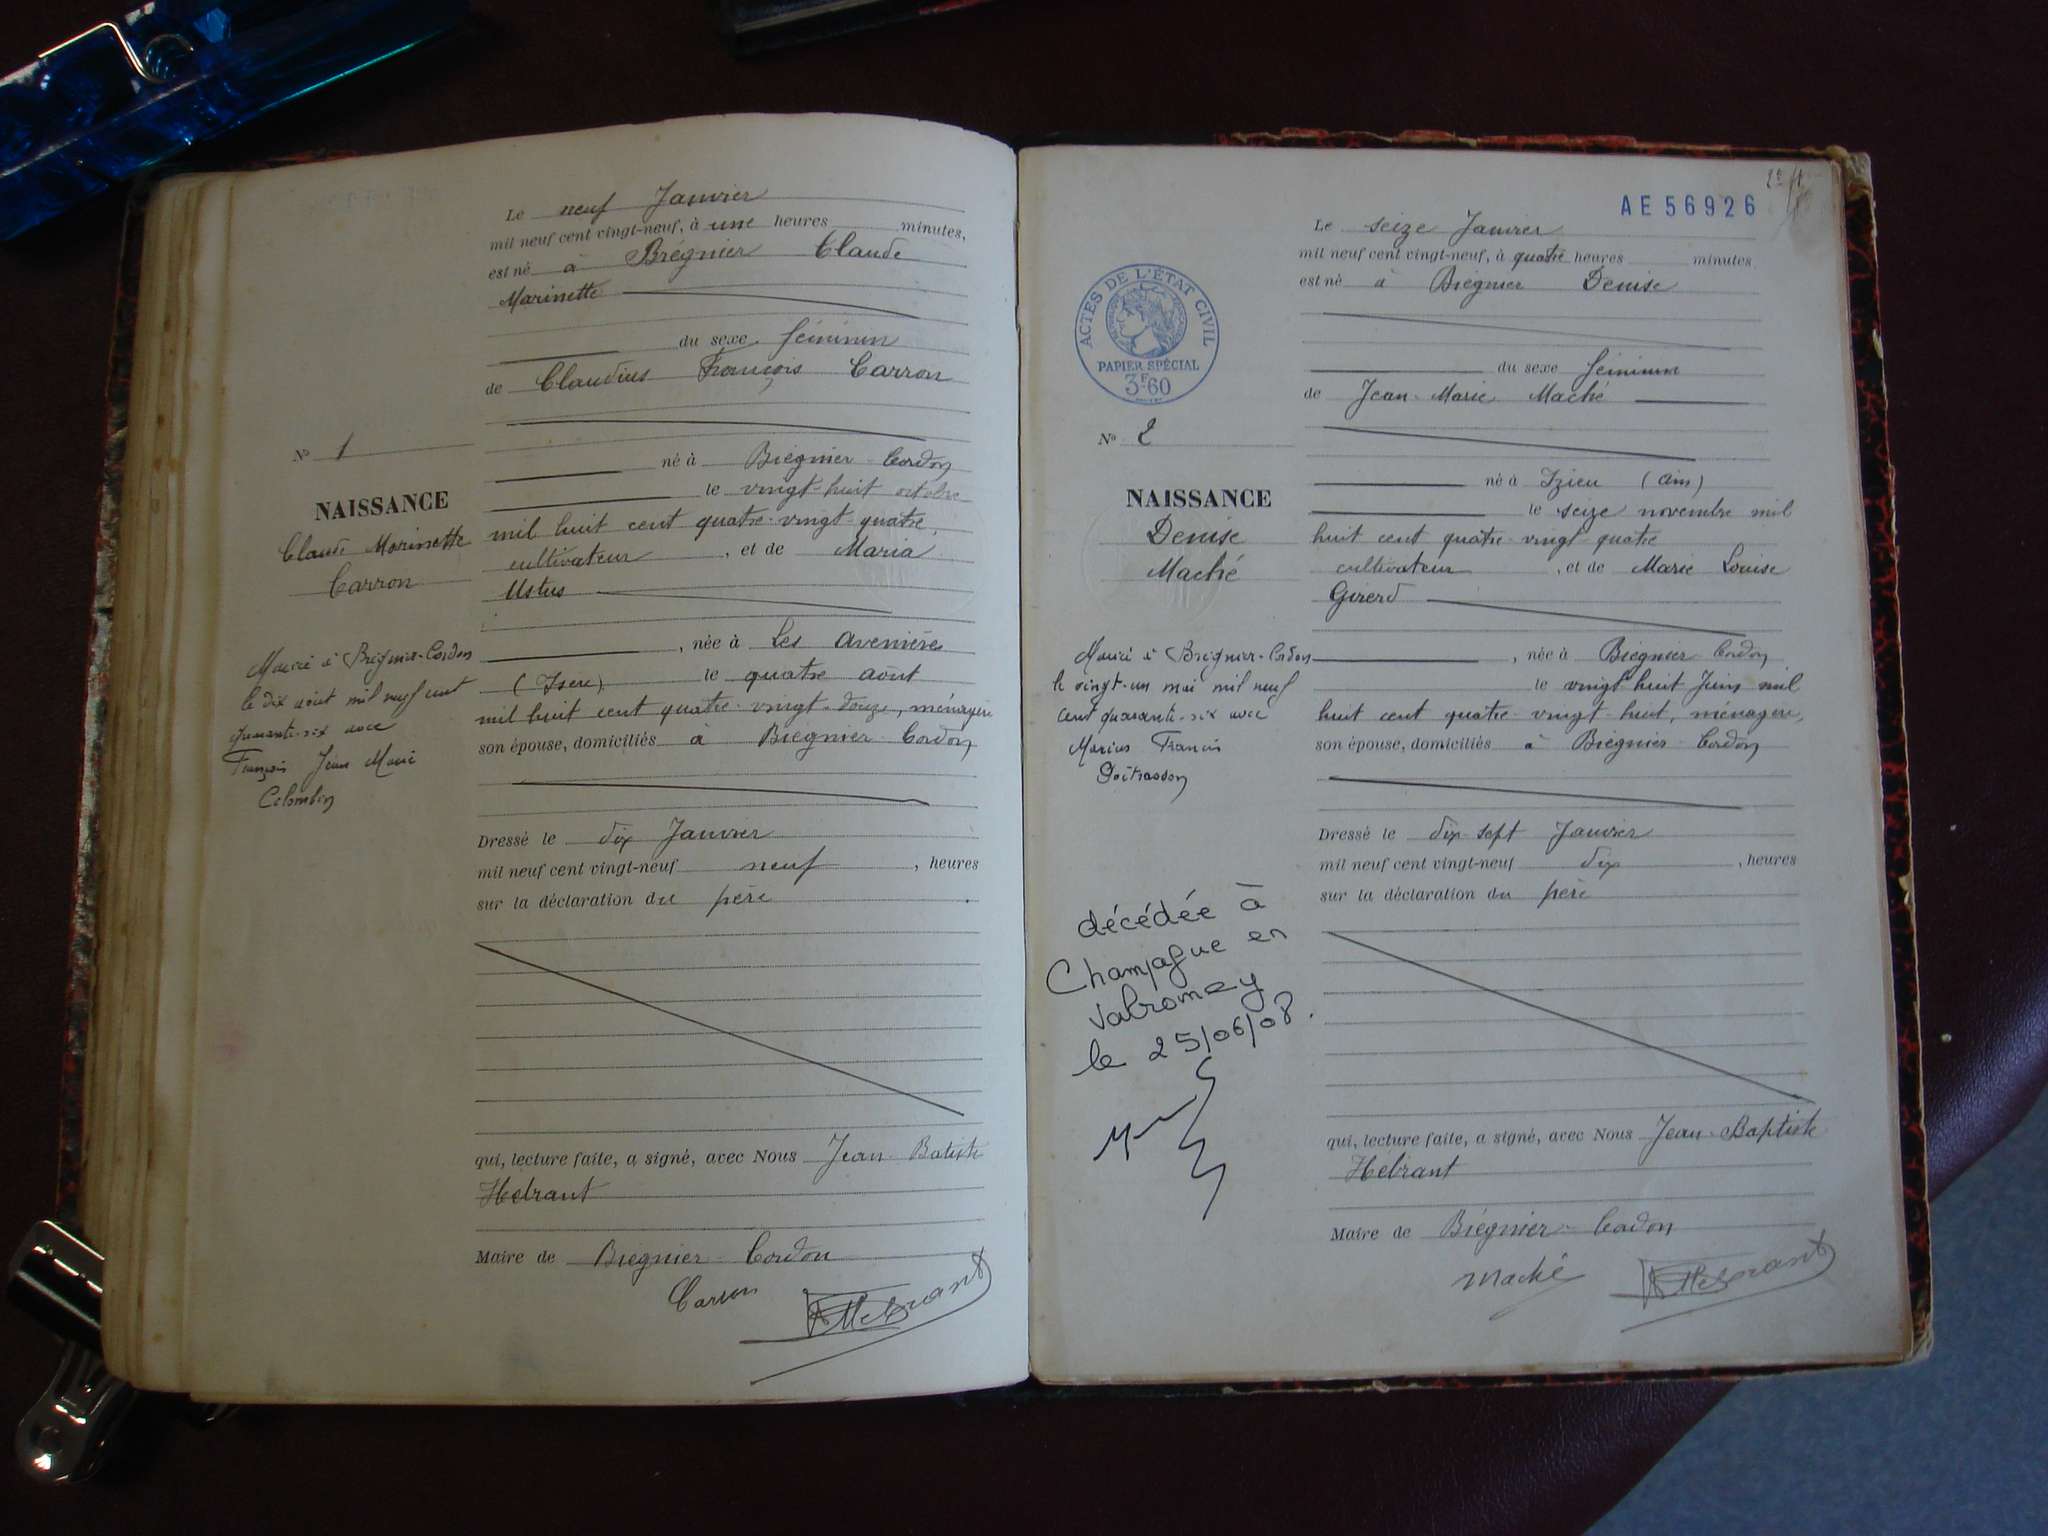 Le neuf Janvier
mil neuf cent vingt-neuf, à une heures minutes,
est né à Brégnier Claude
Marinette
du sexe féminin
de Claudius François Carron
né à Brégnier-Cordon
le vingt-huit octobre
mil huit cent quatre-vingt-quatre,
cultivateur, et de Maria
Ustus
, née à Les Avenières
(Isère) le quatre août
mil huit cent quatre-vingt-douze, ménagère
son épouse, domiciliés à Brégnier-Cordon
Dressé le dix Janvier
mil neuf cent vingt-neuf neuf, heures
sur la déclaration du père
qui, lecture faite, a signé, avec Nous Jean Batiste
Hebrant
Maire de Brégnier-Cordon
Carron Hebrant
N° 1
NAISSANCE
Claude Marinette
Carron
Marié à Brégnier-Cordon
le dix août mil neuf cent
quarante-six avec
François Jean Marie
Colombin
AE 56926
ACTES DE L'ÉTAT CIVIL
PAPIER SPÉCIAL
3F.60
N° 2
NAISSANCE
Denise
Maché
Marié à Brégnier-Cordon
le vingt-un mai mil neuf
cent quarante-six avec
Marius Francis
décédée à
Champagne en
Valromey
le 25/06/08.
Le seize Janvier
mil neuf cent vingt-neuf, à quatre heures minutes
est né à Brégnier Denise
du sexe féminin
de Jean-Marie Maché
né à Izieu (Ain)
le seize novembre mil
huit cent quatre-vingt-quatre
cultivateur, et de Marie Louise
Girerd
, née à Brégnier-Cordon
le vingt huit Juin mil
huit cent quatre-vingt-huit, ménagère,
son épouse, domiciliés à Brégnier-Cordon
Dressé le dix-sept Janvier
mil neuf cent vingt-neuf dix, heures
sur la déclaration du père
qui, lecture faite, a signé, avec Nous Jean-Baptiste
Hebrant
Maire de Brégnier-Cordon
Maché Hebrant